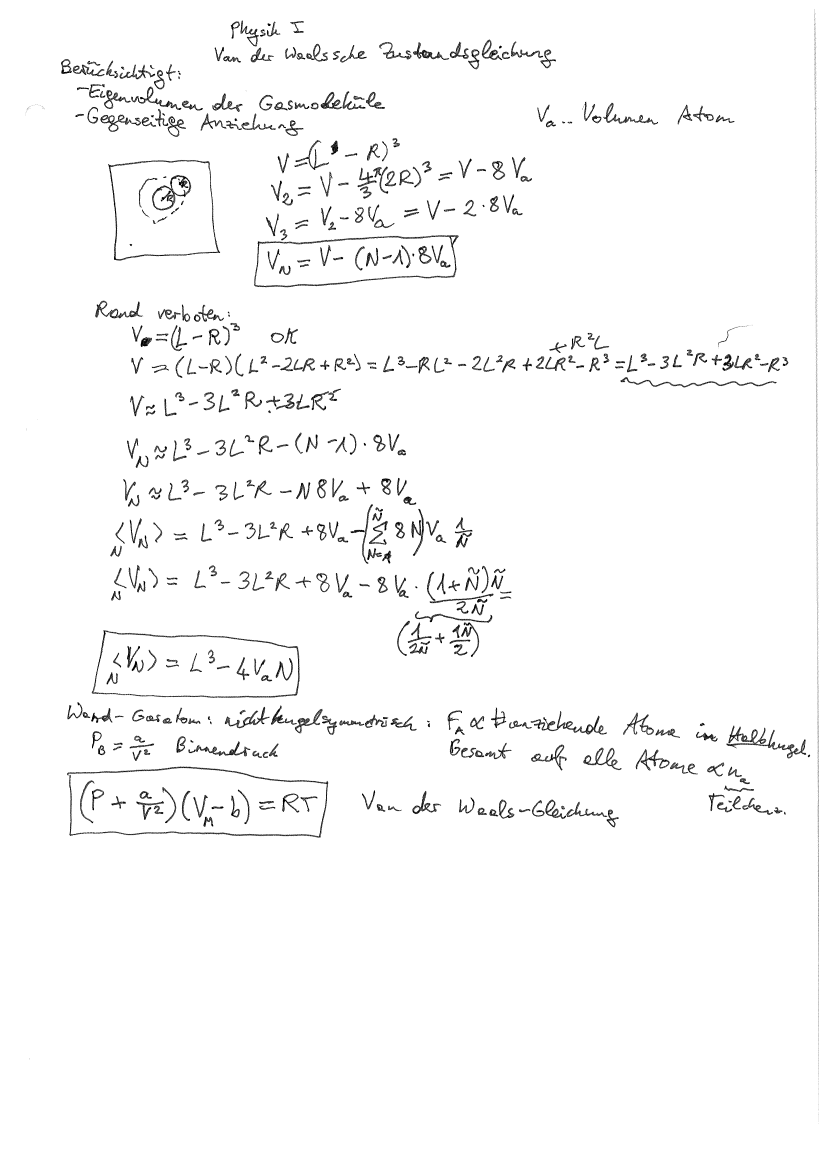 Physik I
Van der Waalssche Zustandsgleichung
Berücksichtigt:
-Eigenvolumen der Gasmoleküle
-Gegenseitige Anziehung
Va .. Volumen Atom
V=(L - R)³
R R
V₂ = V - 4π/3 (2R)³ = V - 8 Va
V₃ = V₂ - 8Va = V - 2·8Va
V_N = V - (N-1)·8Va
Rand verboten:
V = (L-R)³ OK
+ R²L
V = (L-R)(L² - 2LR + R²) = L³ - RL² - 2L²R + 2LR² - R³ = L³ - 3L²R + 3LR² - R³
V ≈ L³ - 3L²R + 3LR²
V_N ≈ L³ - 3L²R - (N-1)·8Va
V_N ≈ L³ - 3L²R - N8Va + 8Va
⟨V_N⟩_N = L³ - 3L²R + 8Va - (∑_{N=1}^{Ñ} 8N) Va 1/Ñ
⟨V_N⟩_N = L³ - 3L²R + 8Va - 8Va · (1+Ñ)Ñ/2Ñ =
(1/2Ñ + 1Ñ/2)
⟨V_N⟩_N = L³ - 4VaN
Wand-Gasatom: nicht kugelsymmetrisch: F_A ∝ #anziehende Atome in Halbkugel.
P_B = a/V² Binnendruck
Gesamt auf alle Atome ∝ n_a
Teilchenz.
(P + a/V²)(V_M - b) = RT
Van der Waals-Gleichung